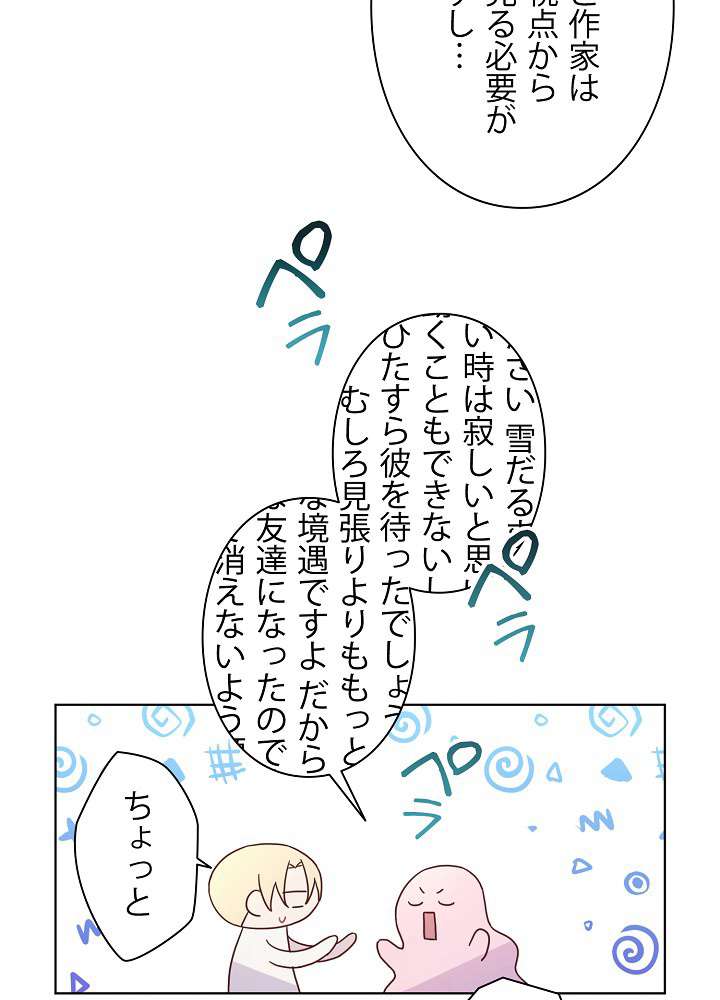 作家は
視点から
見る必要が
し…
ペラ
ペラ
さい 雪だるま
い時は寂しいと思い
くこともできないし
ひたすら彼を待ったでしょう
むしろ見張りよりももっと
な境遇ですよ だから
友達になったので
消えないよう
ペラ
ペラ
ペラ
ペラ
ちょっと